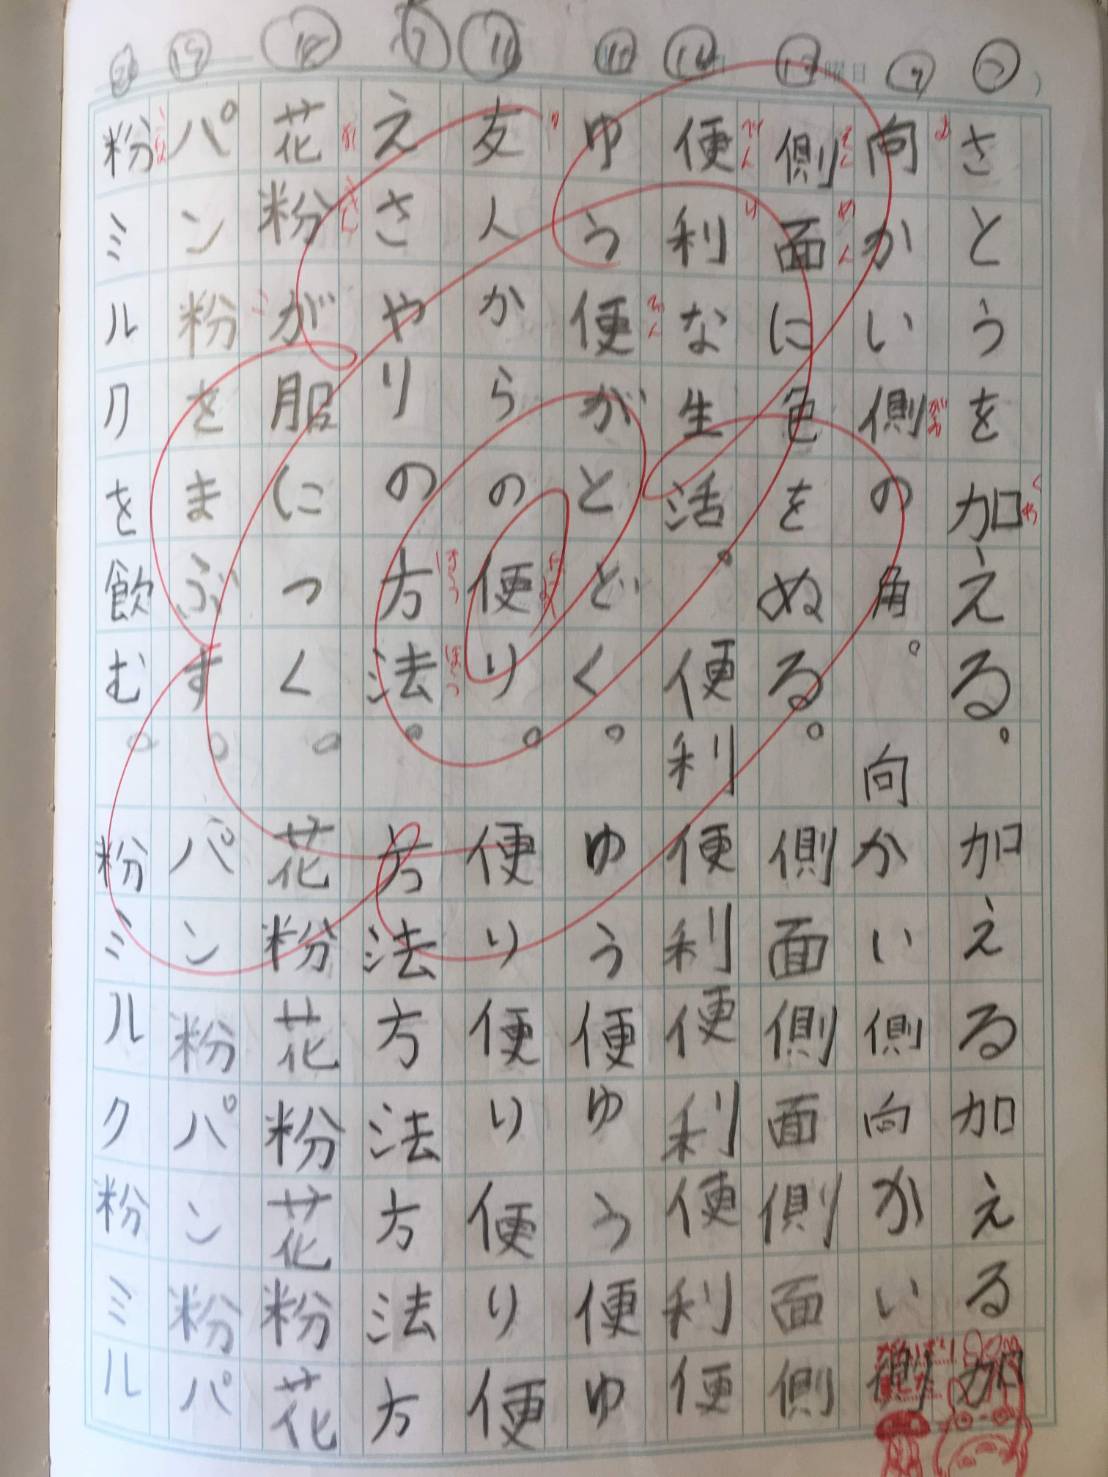 さとうを加える。加える加える加
向かい側の角。向かい側向かい側
側面に色をぬる。側面側面側面側
便利な生活。便利便利便利便利便
ゆう便がとどく。ゆう便ゆう便ゆ
友人からの便り。便り便り便り便
えさやりの方法。方法方法方法方
花粉が服につく。花粉花粉花粉花
パン粉をまぶす。パン粉パン粉パ
粉ミルクを飲む。粉ミルク粉ミル